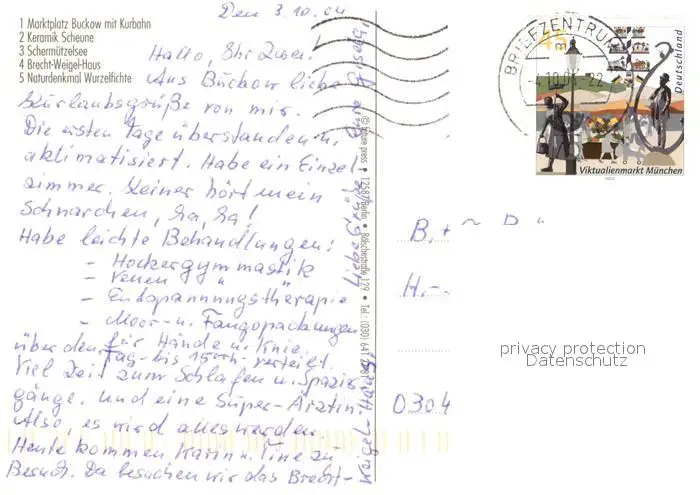 1 Marktplatz Buckow mit Kurbahn
2 Keramik Scheune
3 Schermützelsee
4 Brecht-Weigel-Haus
5 Naturdenkmal Wurzelfichte
Den 3.10.04
Hallo, Ihr Zwei!
Aus Buckow liebe
Kururlaubsgrüße von mir.
Die ersten Tage überstanden u.
aklimatisiert. Habe ein Einzel
zimmer. Keiner hört mein
Schnarchen, ha, ha!
Habe leichte Behandlungen:
- Hockergymnastik
- Venen "
- Entspannungstherapie
- Moor- u. Fangopackungen
für Hände u. Knie.
über den Tag - bis 15 00 h - verteilt.
Viel Zeit zum Schlafen u. Spazier
gänge. Und eine Super-Ärztin
Also, es wird alles werden
Heute kommen Karin u. Tine zu
Besuch. Da besuchen wir das Brecht-
Weigel-Haus.
Liebe Grüße Eure
12587 Berlin • Bölschestraße 129 • Tel.: (030) 641
BRIEFZENTRUM
4.10.04-22
45
Deutschland
Viktualienmarkt München
B.
H.
0304
privacy protection
Datenschutz